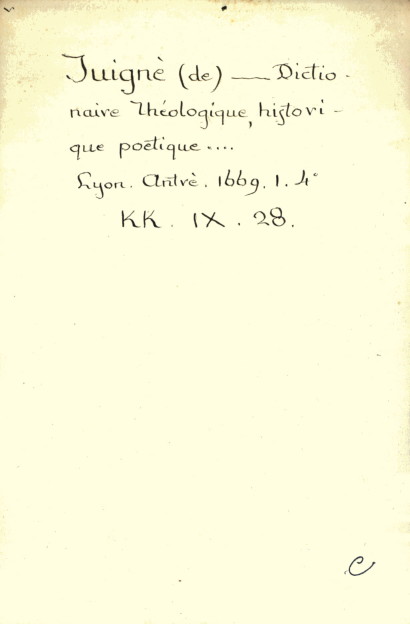 Juignè (de) — Dictio-
naire théologique, histori-
que poëtique....
Lyon. Antrè. 1669. 1. 4°
KK. IX. 28.
C